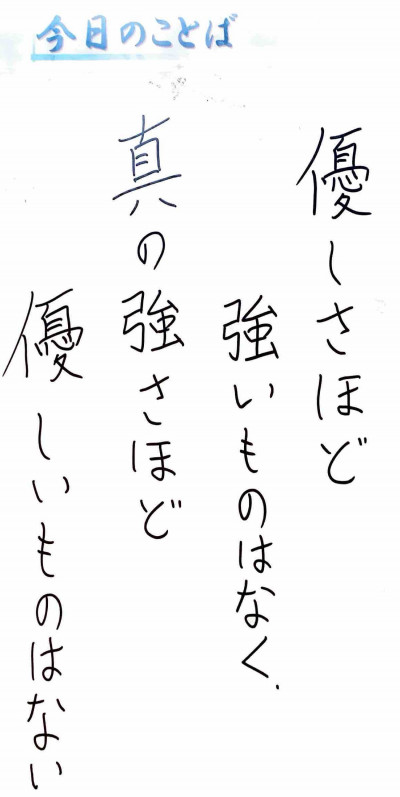 今日のことば
優しさほど
強いものはなく、
真の強さほど
優しいものはない